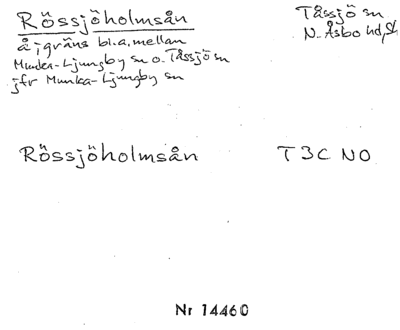 Rössjöholmsån
Tåssjö sn
N. Åsbo hd, Sk
å i gräns bl.a. mellan
Munka-Ljungby sn o. Tåssjö sn
jfr Munka-Ljungby sn
Rössjöholmsån
T 3C NO
Nr 14460